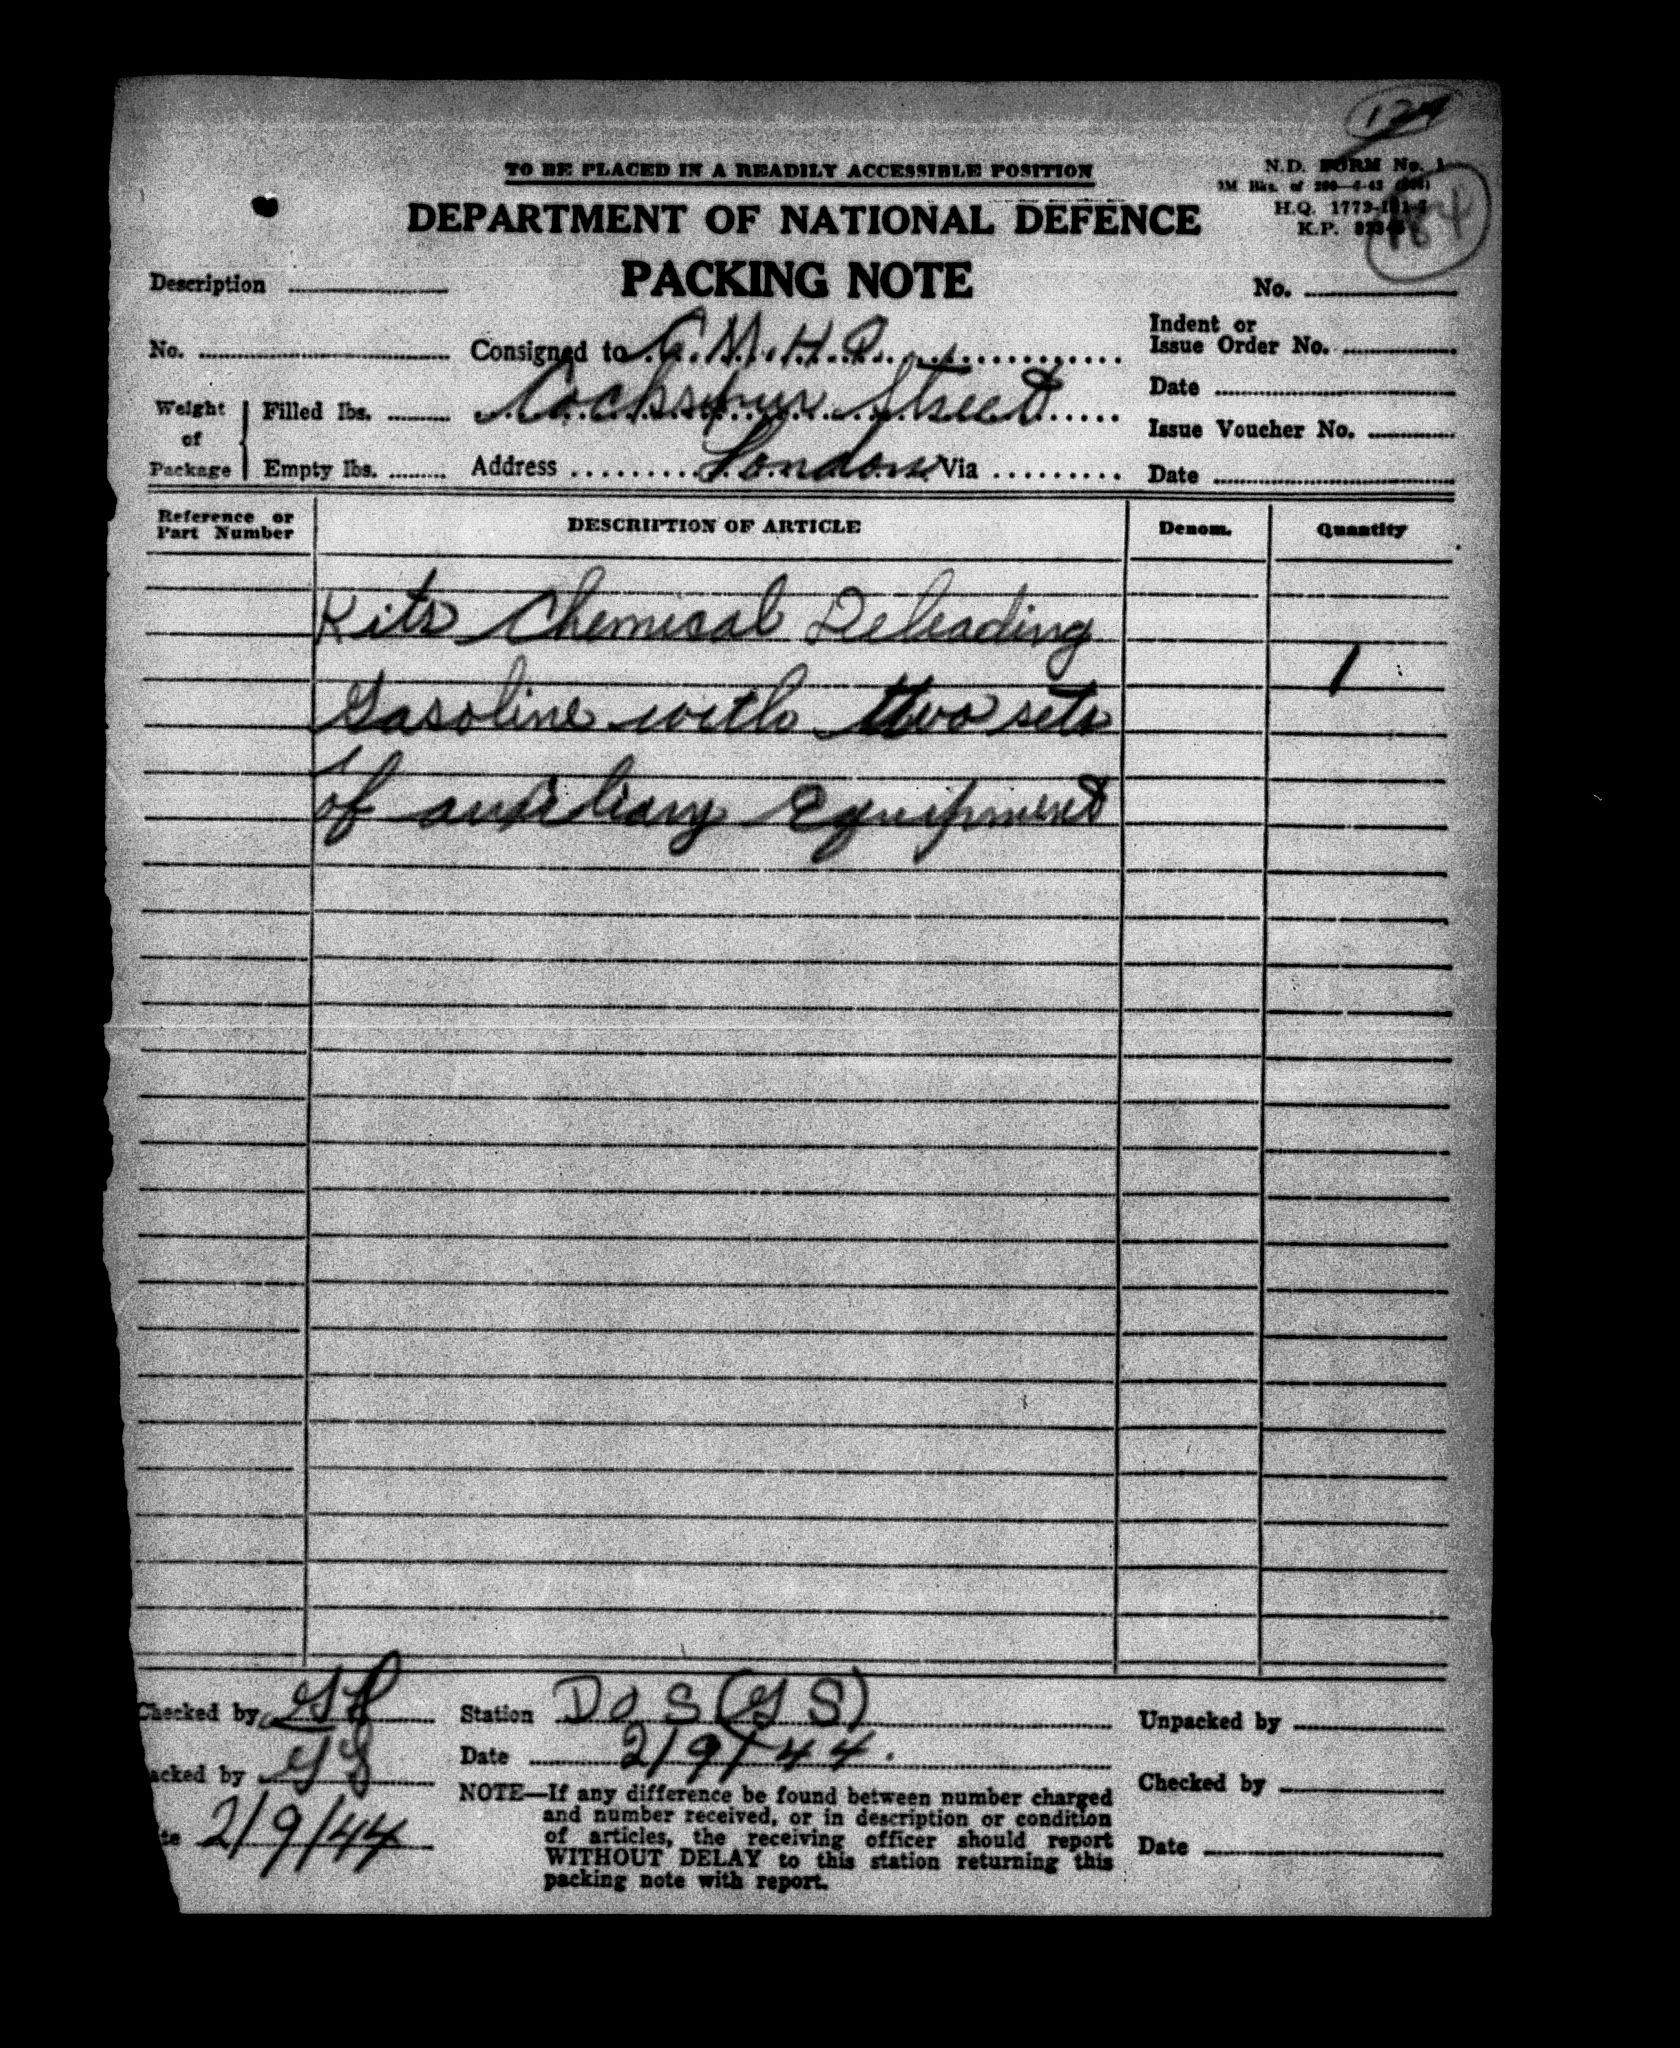 TO BE PLACED IN A READILY ACCESSIBLE POSITION
N.D. FORM No. 1
DEPARTMENT OF NATIONAL DEFENCE
H.Q.
K.P.
184
PACKING NOTE
Description
No.
No.
Consigned to C.M.H.Q.
Indent or
Issue Order No.
Cockspur Street
Date
Weight of Package
Filled lbs.
Issue Voucher No.
Empty lbs.
Address London Via
Date
Reference or Part Number
DESCRIPTION OF ARTICLE
Denom.
Quantity
Kits Chemical Deleading
1
Gasoline with two sets
of auxiliary Equipment
Checked by
Station D O S (G S)
Unpacked by
Date 2/9/44.
acked by
Checked by
NOTE—If any difference be found between number charged
and number received, or in description or condition
of articles, the receiving officer should report
WITHOUT DELAY to this station returning this
packing note with report.
te 2/9/44
Date